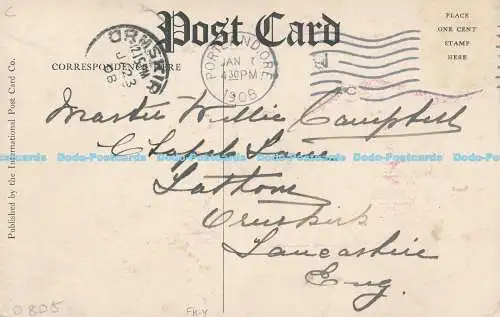 C
Post Card
PLACE
ONE CENT
STAMP
HERE
CORRESPONDENCE HERE
ORMSKIRK
12.15PM
JA 23
08
PORTLAND, ORE.
JAN 7
4 30 PM
1908
Master Willie Campbell
Chapel Lane
Lathom
Ormskirk
Lancashire
Eng.
Published by the International Post Card Co.
Dodo-Postcards Dodo-Postcards Dodo-Postcards Dodo-Postcards Dodo-Postcards
0805